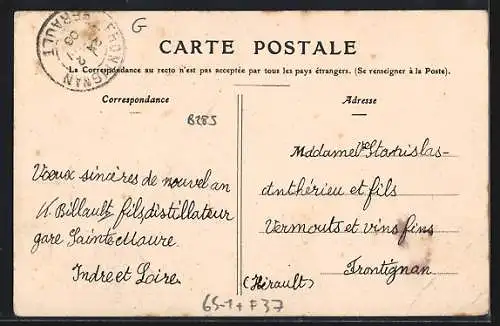 G
FRONTIGNAN
HERAULT
CARTE POSTALE
La Correspondance au recto n'est pas acceptée par tous les pays étrangers. (Se renseigner à la Poste).
Correspondance
Adresse
B285
Vœux sincères de nouvel an
Billault fils distillateur
gare Sainte Maure
Indre et Loire
Madame Vve Stanislas-
Anthérieu et fils
Vermouts et vins fins
Frontignan
(Hérault)
65-1+F37